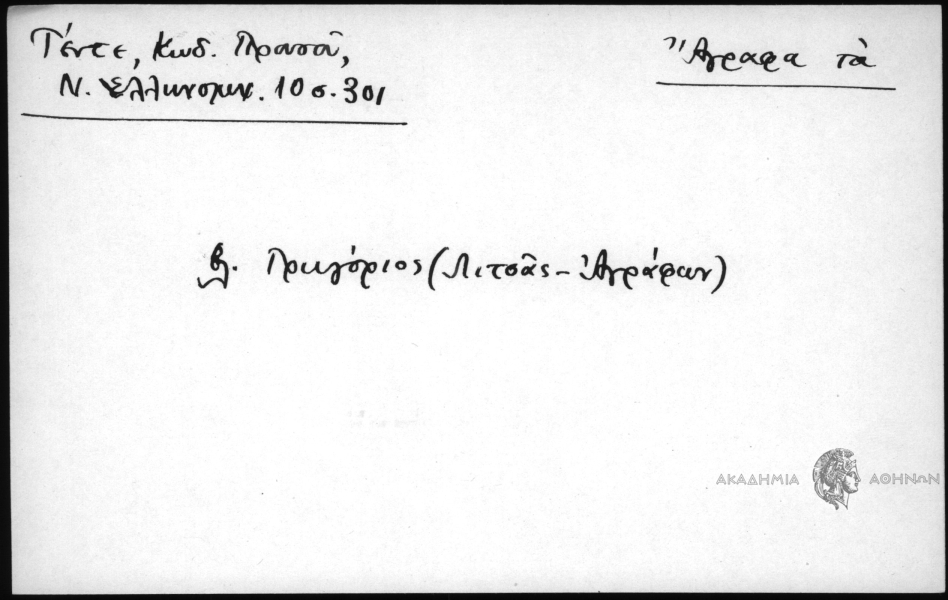 Γέντε, Κωδ. Πρασοῦ,
Ν. Ἑλληνομν. 10 σ. 301
Ἄγραφα τὰ
βλ. Γρηγόριος (Λιτσᾶς - Ἀγράφων)
ΑΚΑΔΗΜΙΑ ΑΘΗΝΩΝ